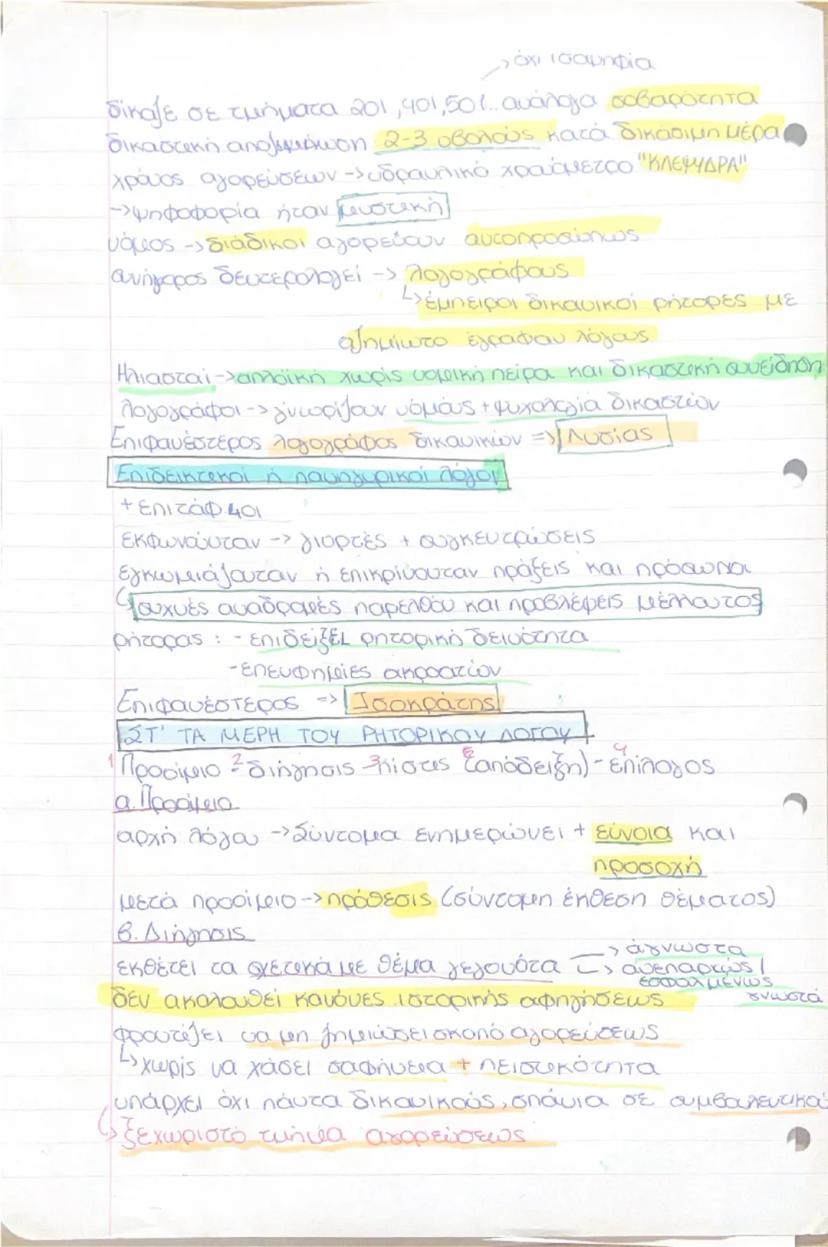 → όχι ισοψηφία
δίκαζε σε τμήματα 201, 401, 501.. ανάλογα σοβαρότητα
δικαστική αποζημίωση 2-3 οβολούς κατά δικάσιμη μέρα
χρόνος αγορεύσεων → υδραυλικό χρονόμετρο "ΚΛΕΨΥΔΡΑ"
→ ψηφοφορία ήταν μυστική
νόμος → διάδικοι αγορεύουν αυτοπροσώπως
συνήγορος δευτερολογεί → λογογράφους
↳ έμπειροι δικανικοί ρήτορες με
αζημίωτο έγραφαν λόγους
Ηλιασταί → απλοϊκή χωρίς νομική πείρα και δικαστική συνείδηση
λογογράφοι → γνωρίζουν νόμους + ψυχολογία δικαστών
Επιφανέστερος λογογράφος δικανικών ⇒ Λυσίας
Επιδεικτικοί ή πανηγυρικοί λόγοι
+ επιτάφιοι
εκφωνούνταν → γιορτές + συγκεντρώσεις
εγκωμιάζονταν ή επικρίνονταν πράξεις και πρόσωπα
↳ συχνές αναδρομές παρελθόν και προβλέψεις μέλλοντος
ρήτορας : - επιδείξει ρητορική δεινότητα
- επευφημίες ακροατών
Επιφανέστερος → Ισοκράτης
ΣΤ' ΤΑ ΜΕΡΗ ΤΟΥ ΡΗΤΟΡΙΚΟΥ ΛΟΓΟΥ
1 Προοίμιο - 2 διήγησις - 3 πίστις (απόδειξη) - 4 επίλογος
α. Προοίμιο
αρχή λόγου → Σύντομα ενημερώνει + εύνοια και
προσοχή
μετά προοίμιο → πρόθεσις (σύντομη έκθεση θέματος)
β. Διήγησις
εκθέτει τα σχετικά με θέμα γεγονότα → άγνωστα
→ ανεπαρκώς /
εσφαλμένως
γνωστά
δεν ακολουθεί κανόνες ιστορικής αφηγήσεως
φροντίζει να μη ζημιώσει σκοπό αγορεύσεως
↳ χωρίς να χάσει σαφήνεια + πειστικότητα
υπάρχει όχι πάντα δικανικούς, σπάνια σε συμβουλευτικού
↳ ξεχωριστό τμήμα αγορεύσεως